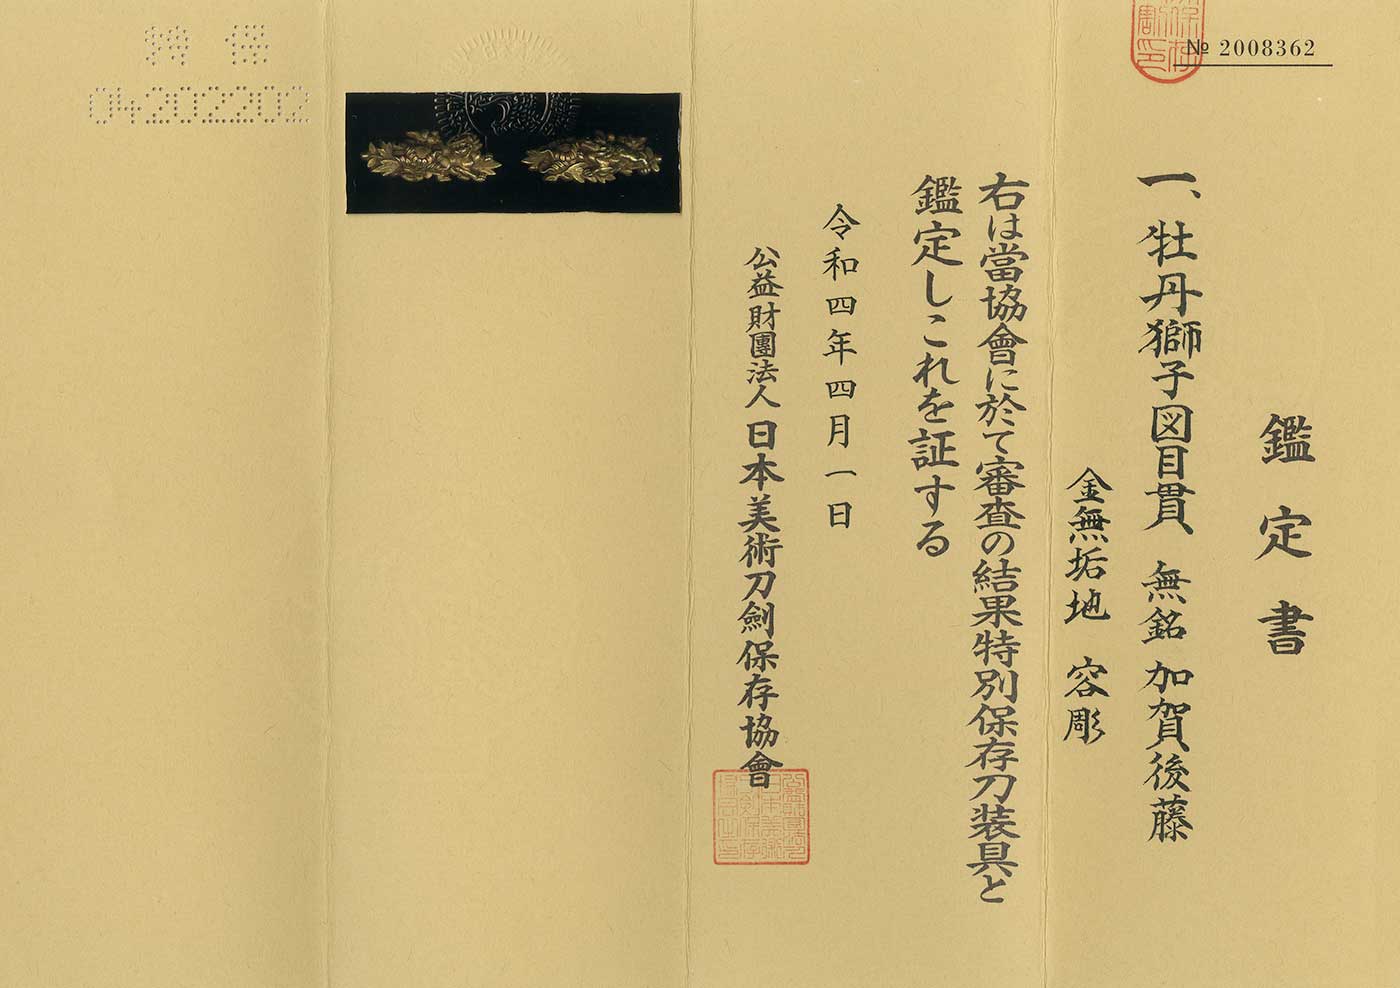 № 2008362
鑑定書
一、牡丹獅子図目貫 無銘 加賀後藤
金無垢地 容彫
右は當協會に於て審査の結果特別保存刀装具と
鑑定しこれを証する
令和四年四月一日
公益財團法人 日本美術刀劍保存協會
特保
04202202